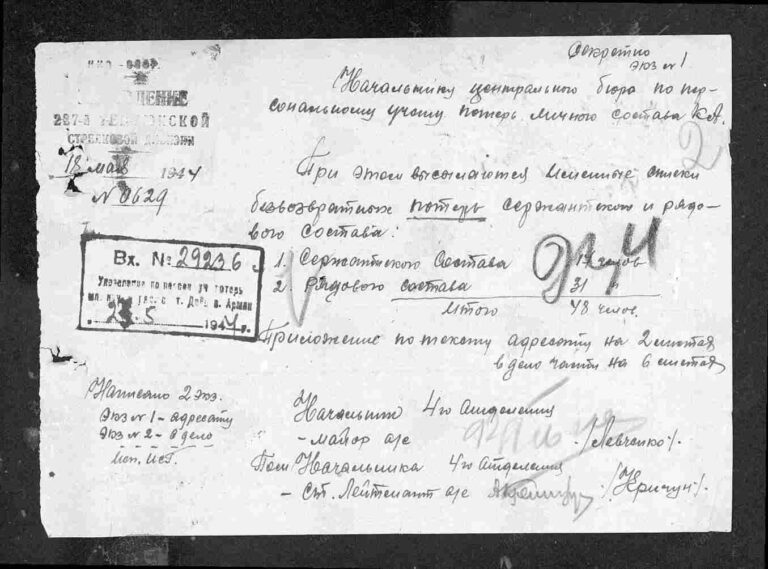 Секретно
Экз № 1
НКО - СССР
287-й
СТРЕЛКОВОЙ ДИВИЗИИ
18 мая 1944
№ 0629
Начальнику центрального бюро по пер-
сональному учету потерь личного состава КА.
2
При этом высылаются именные списки
безвозвратных потерь сержантского и рядо-
вого состава:
1. Сержантского Состава
2. Рядового состава 31 "
Итого 48 челов.
Вх. № 29236
Управление по персон. уч. потерь
Армии
23.5 1944 г.
Приложение по тексту адресату на 2 листах
в дело части на 6 листах
Написано 2 экз.
Экз № 1 - адресату
Экз № 2 - в дело
Исп. ИСГ.
Начальник 4го отделения
- майор а/с /Левченко/.
Пом Начальника 4го отделения
- Ст. Лейтенант а/с /Кричун/.